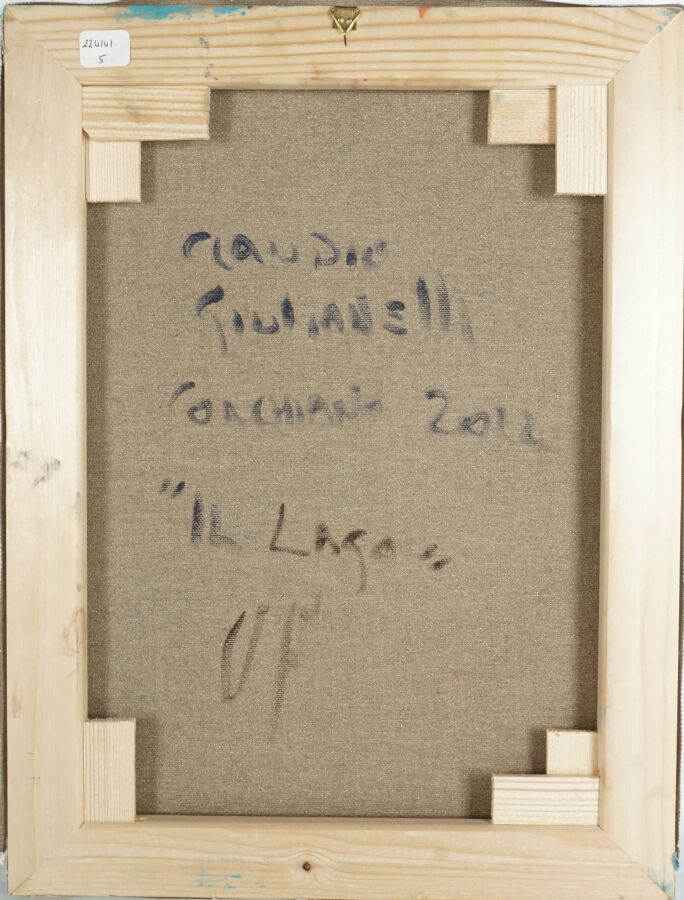 224141
5
CLAUDIO
GIULIANELLI
CORCHIANO 2022
"IL LAGO"